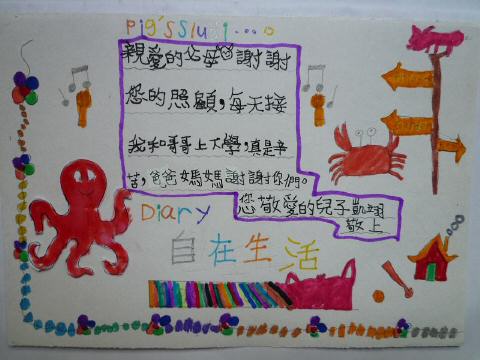 親愛的父母謝謝
您的照顧，每天接
我和哥哥上大學，真是辛
苦，爸爸媽媽謝謝你們。
您敬愛的兒子凱翊
敬上
Diary
自在生活